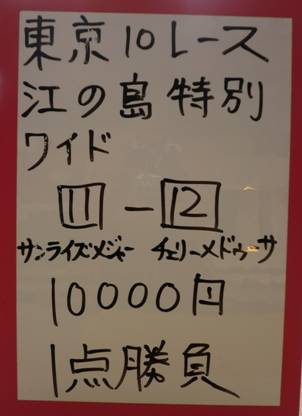 東京10レース
江の島特別
ワイド
11-12
サンライズメジャー チェリーメドゥーサ
10000円
1点勝負